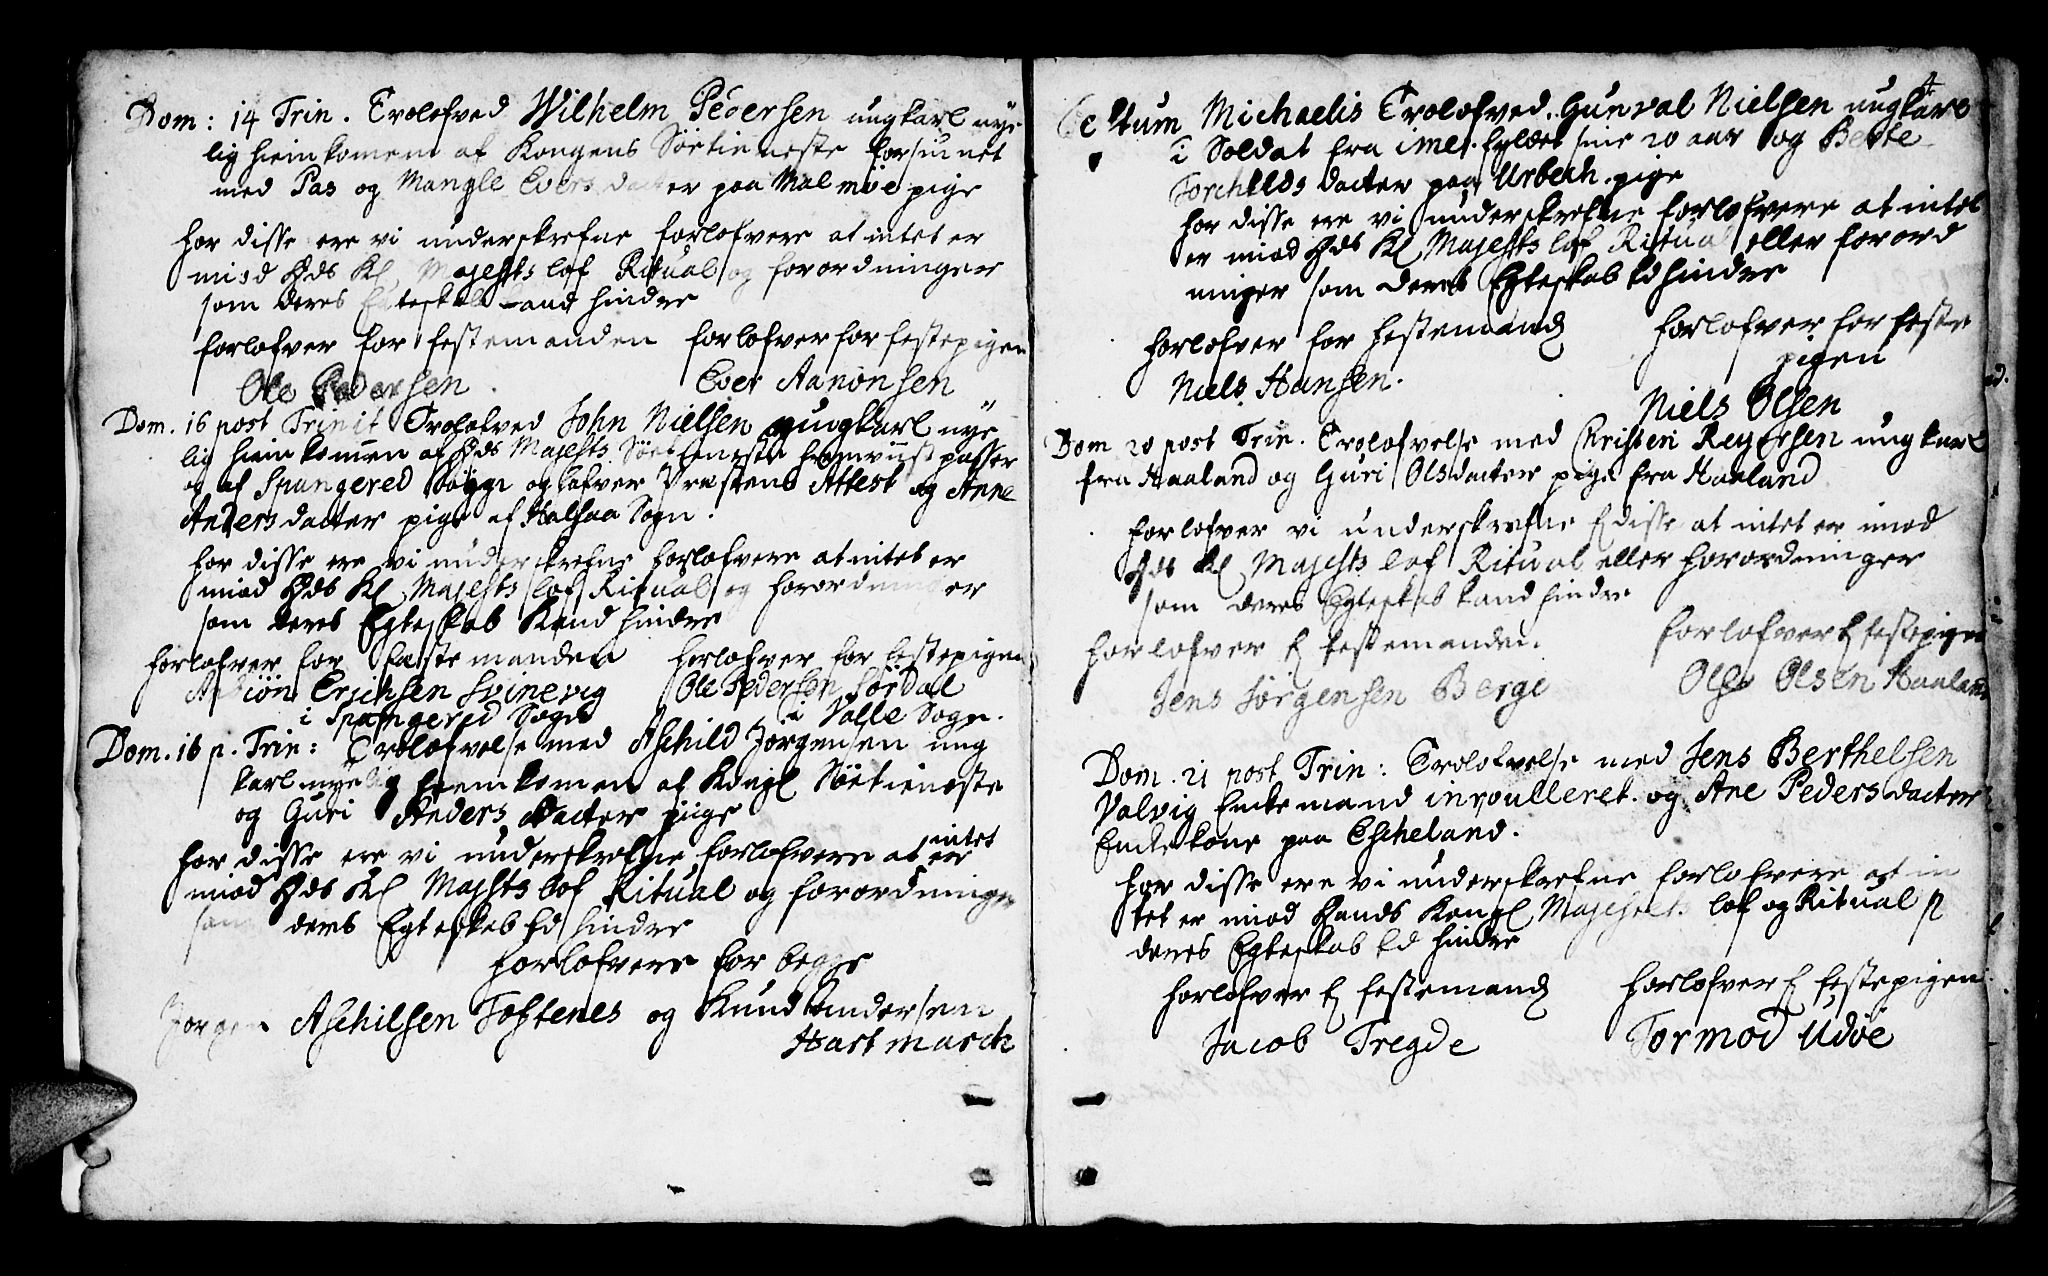 Dom: 14 Trin. Trolofved Wilhelm Pedersen ungkarl nye
lig hiemkomen af Kongens Söetieneste forsiunet
med Pas og Mangle Evers dacter paa Malmöe pige
for disse ere vi underskrefne forlofvere at intet er
miod Hds Kl Majests lof Ritual og forordninger
som deres Egteskab kand hindre
forlofver for festemanden forlofver for festepigen
Ole Pedersen. Ever Aanonsen
Dom. 16 post Trinit Trolofved John Nielsen ungkarl nye
lig hiemkomen af Hds Majests Söetieneste fremviist passer
og af Spangered Sogn og lofver Præstens Attest og Anne
Anders dacter pige af Halsaa Sogn.
for disse ere vi underskrefne forlofvere at intet er
miod Hds Kl Majests lof Ritual og forordninger
som deres Egteskab Kand hindre
forlofver for festemanden forlofver for festepigen
Erichsen Svinevig Ole Pedersen Sördal
i Spangered Sogn i Valle Sogn.
Dom. 16 p. Trin: Trolofvelse med Aschild Jorgensen ung
karl nyelig hiemkomen af Kongl Söetieneste
og Guri Anders dacter piige
for disse ere vi underskrefne forlofvere at intet er
miod Hds Kl Majests lof Ritual og forordninger
som deres Egteskab kd hindre
forlofvere for begge
Jorgen Aschilsen Toftenes og Knud Andersen
Hartmarck
4
Festum Michaelis Trolofved Gunval Nielsen ungkarl
i Soldat fra ime. fyldet sine 20 aar og Berte
Torchilds dacter paa Urbech pige
for disse ere vi underskrefne forlofvere at intet
er miod Hds Kl Majests lof Ritual eller forord
ninger som deres Egteskab kd hindre
forlofver for festemand forlofver for feste
pigen
Niels Hansen.
Niels Olsen
Dom 20 post Trin. Trolofvelse med Christen Reyersen ungkarl
fra Haaland og Guri Olsdacter pige fra Haaland
forlofver vi underskrefne f disse at intet er imod
Hds Kl Majests lof Ritual eller forordninger
som deres Egteskab kand hindre
forlofver f festemanden. forlofver f festepigen
Jens Jörgensen Berge Ole Olsen Haaland
Dom. 21 post Trin: Trolofvelse med Jens Berthelsen
Valvig Enkemand inroulleret. og Ane Peders dacter
Enkekone paa Escheland.
for disse ere vi underskrefne forlofvere at in
tet er miod Hands Kongl Majestets lof og Ritual
deres Egteskab kd hindre
forlofver f festemand forlofver f festepigen
Jacob Tregde Tormod Udöe